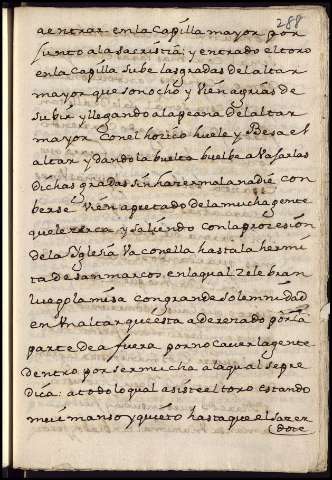 288
a entrar en la Capilla mayor por
junto a la sacristia; y entrado el toro
en la Capilla sube las gradas del altar
mayor que son ocho y vien agrias de
subir y llegando a la peana del altar
mayor con el hocico huele y Besa el
altar y dando la buelta buelbe a Vaxarlas
dichas gradas sin hazer mal a nadie con
berse Vien apretado de la mucha gente
que le zerca, y saliendo con la prozesion
de la Yglesia Va con ella hasta la hermi
ta de san marcos, en la qual zelebran
luego la misa con grande solemnidad
en Vn altar que está aderezado por la
parte de a fuera por no caver la gente
dentro por ser mucha a la qual se pre
dica: a todo lo qual asiste el toro estando
mui manso y quieto hasta que el sazer
dote